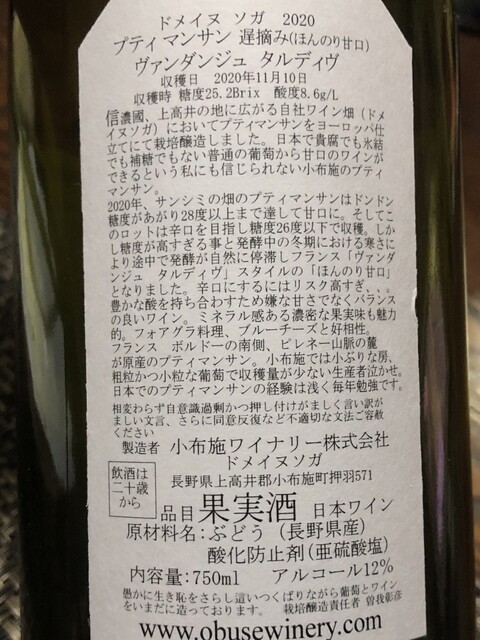 ドメイヌ ソガ 2020
プティマンサン 遅摘み(ほんのり甘口)
ヴァンダンジュ タルディヴ
収穫日 2020年11月10日
収穫時 糖度25.2Brix 酸度8.6g/L
信濃國、上高井の地に広がる自社ワイン畑（ドメ
イヌソガ）においてプティマンサンをヨーロッパ仕
立てにて栽培醸造しました。日本で貴腐でも氷結
でも補糖でもない普通の葡萄から甘口のワインが
できるという私にも信じられない小布施のプティ
マンサン。
2020年、サンシミの畑のプティマンサンはドンドン
糖度があがり28度以上まで達して甘口に。そしてこ
のロットは辛口を目指し糖度26度以下で収穫。しか
し糖度が高すぎる事と発酵中の冬期における寒さに
より途中で発酵が自然に停滞しフランス「ヴァンダ
ンジュ タルディヴ」スタイルの「ほんのり甘口」
となりました。辛口にするにはリスク高すぎ、、。
豊かな酸を持ち合わすため嫌な甘さでなくバランス
の良いワイン。ミネラル感ある濃密な果実味も魅力
的。フォアグラ料理、ブルーチーズと好相性。
フランス ボルドーの南側、ピレネー山脈の麓
が原産のプティマンサン。小布施では小ぶりな房、
粗粒かつ小粒な葡萄で収穫量が少ない生産者泣かせ。
日本でのプティマンサンの経験は浅く毎年勉強です。
相変わらず自意識過剰かつ押し付けがましく言い訳が
ましい文言、さらに同意反復など不適切な文法ご容赦
ください
製造者 小布施ワイナリー株式会社
ドメイヌソガ
長野県上高井郡小布施町押羽571
飲酒は
二十歳
から
品目 果実酒 日本ワイン
原材料名：ぶどう（長野県産）
酸化防止剤(亜硫酸塩)
内容量:750ml アルコール12%
愚かに生き恥をさらし這いつくばりながら葡萄とワイン
をいまだに造っております。 栽培醸造責任者 曽我彰彦
www.obusewinery.com